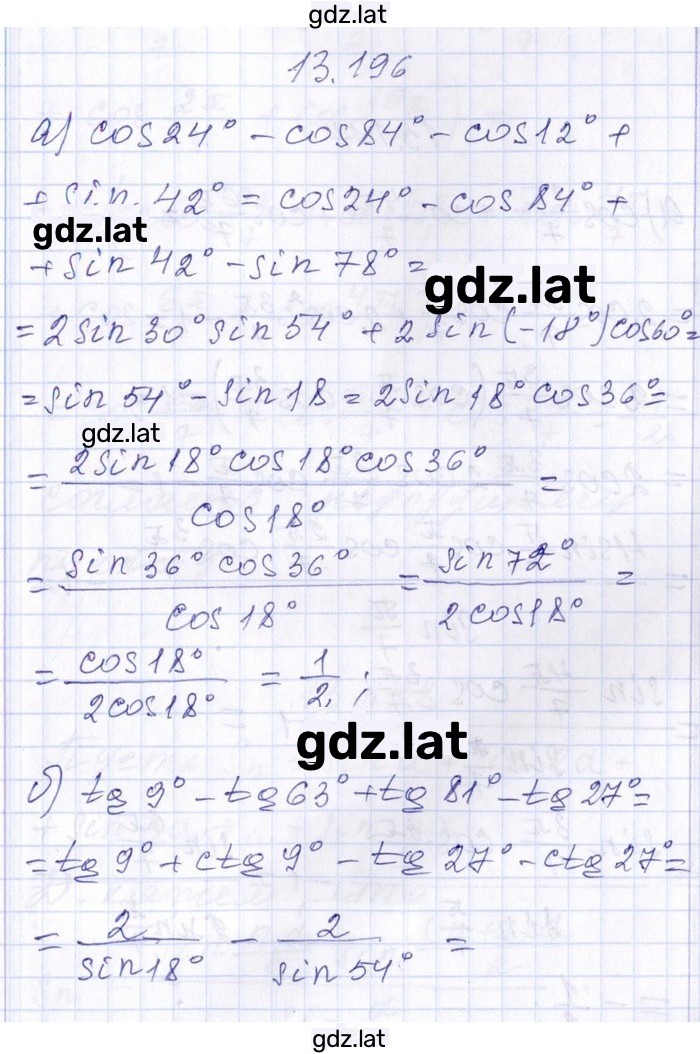 gdz.lat
13.196
а) cos 24° - cos 84° - cos 12° +
+ sin. 42° = cos 24° - cos 84° +
gdz.lat
+ sin 42° - sin 78° =
gdz.lat
= 2 sin 30° sin 54° + 2 sin (-18°) cos 60° =
= sin 54° - sin 18 = 2 sin 18° cos 36° =
gdz.lat
= 2 sin 18° cos 18° cos 36° / cos 18° =
= sin 36° cos 36° / cos 18° = sin 72° / 2 cos 18° =
= cos 18° / 2 cos 18° = 1/2 ;
gdz.lat
б) tg 9° - tg 63° + tg 81° - tg 27° =
= tg 9° + ctg 9° - tg 27° - ctg 27° =
= 2 / sin 18° - 2 / sin 54° =
gdz.lat